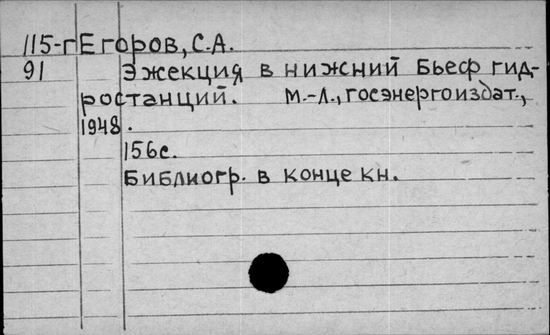 115-г Егоров, С.А.
91 Эжекция в нижний бьеф гид-
ростанций. М.-Л., госэнергоиздат.,
1948.
156с.
Библиогр. в конце кн.